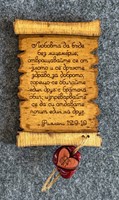 Любовта да бъде
без лицемерие;
отвращавайте се от
злото и се дръжте
здраво за доброто,
горещо се обичайте
един друг с братска
обич; изпреварвайте
се да си отдавате
почит един на друг.
Римляни 12:9-10